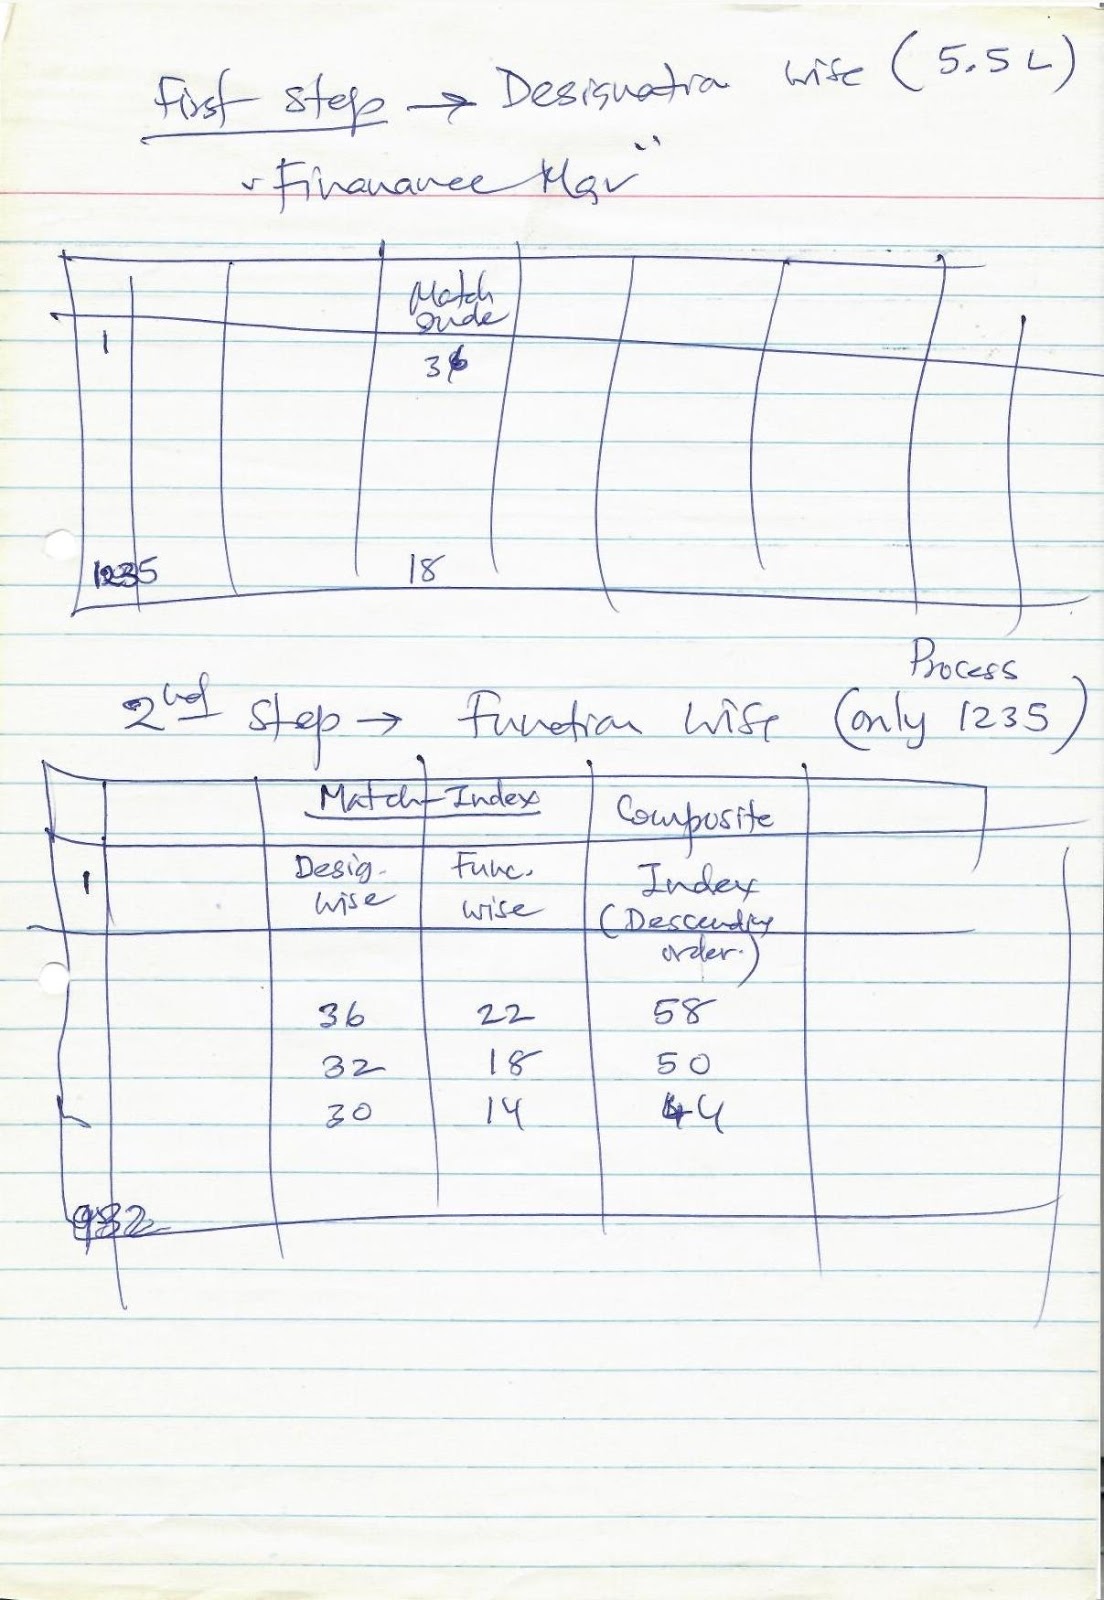 First step → Designation wise (5.5 L)
"Finanance Mgr"
Match
1
36
1235 18
Process
2nd step → Function wise (only 1235)
Match-Index Composite
1 Desig. wise Func. wise Index
(Descending order.)
36 22 58
32 18 50
30 14 44
932